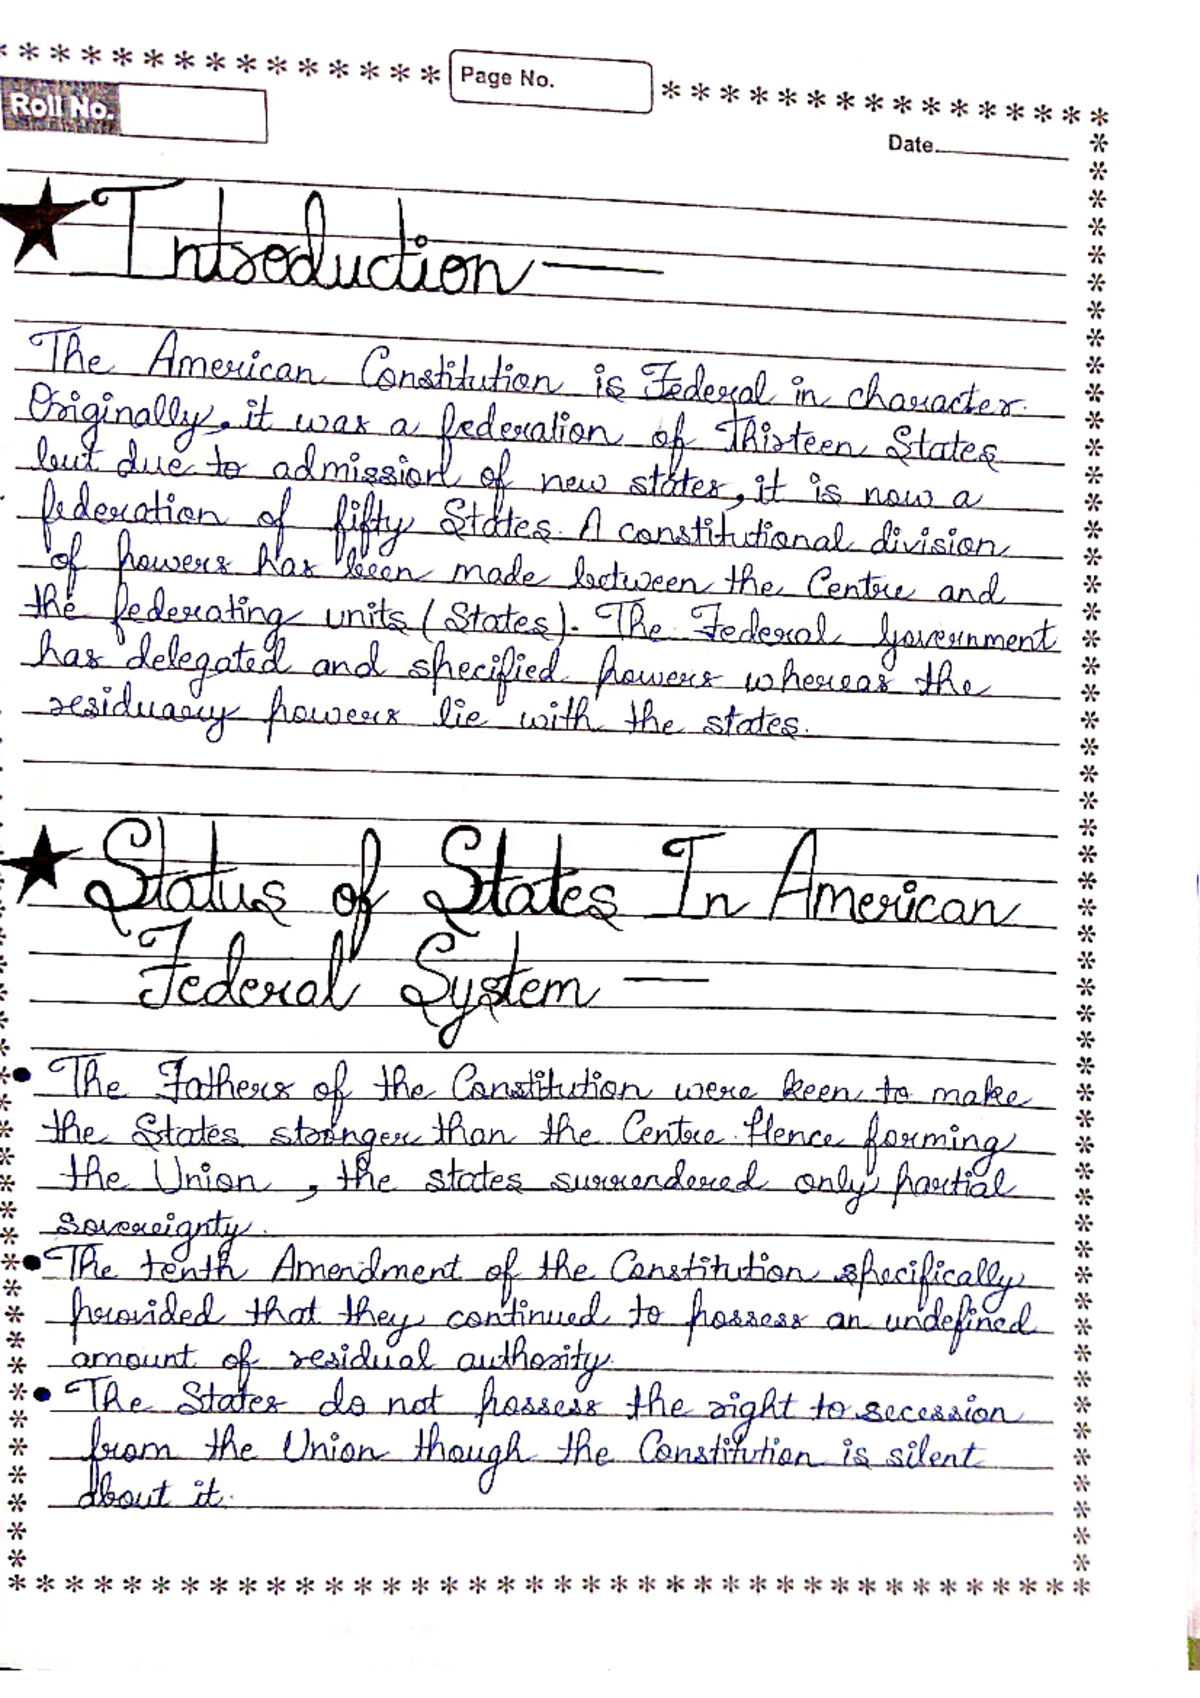 Page No.
Roll No.
Date.
Introduction —
The American Constitution is Federal in character.
Originally, it was a federation of Thirteen States
but due to admission of new states, it is now a
federation of fifty States. A constitutional division
of powers has been made between the Centre and
the federating units (States). The Federal Government
has delegated and specified powers whereas the
residuary powers lie with the states.
Status of States In American
Federal System —
• The Fathers of the Constitution were keen to make
the States stronger than the Centre. Hence forming
the Union, the states surrendered only partial
sovereignty.
• The tenth Amendment of the Constitution specifically
provided that they continued to possess an undefined
amount of residual authority.
• The States do not possess the right to secession
from the Union though the Constitution is silent
about it.